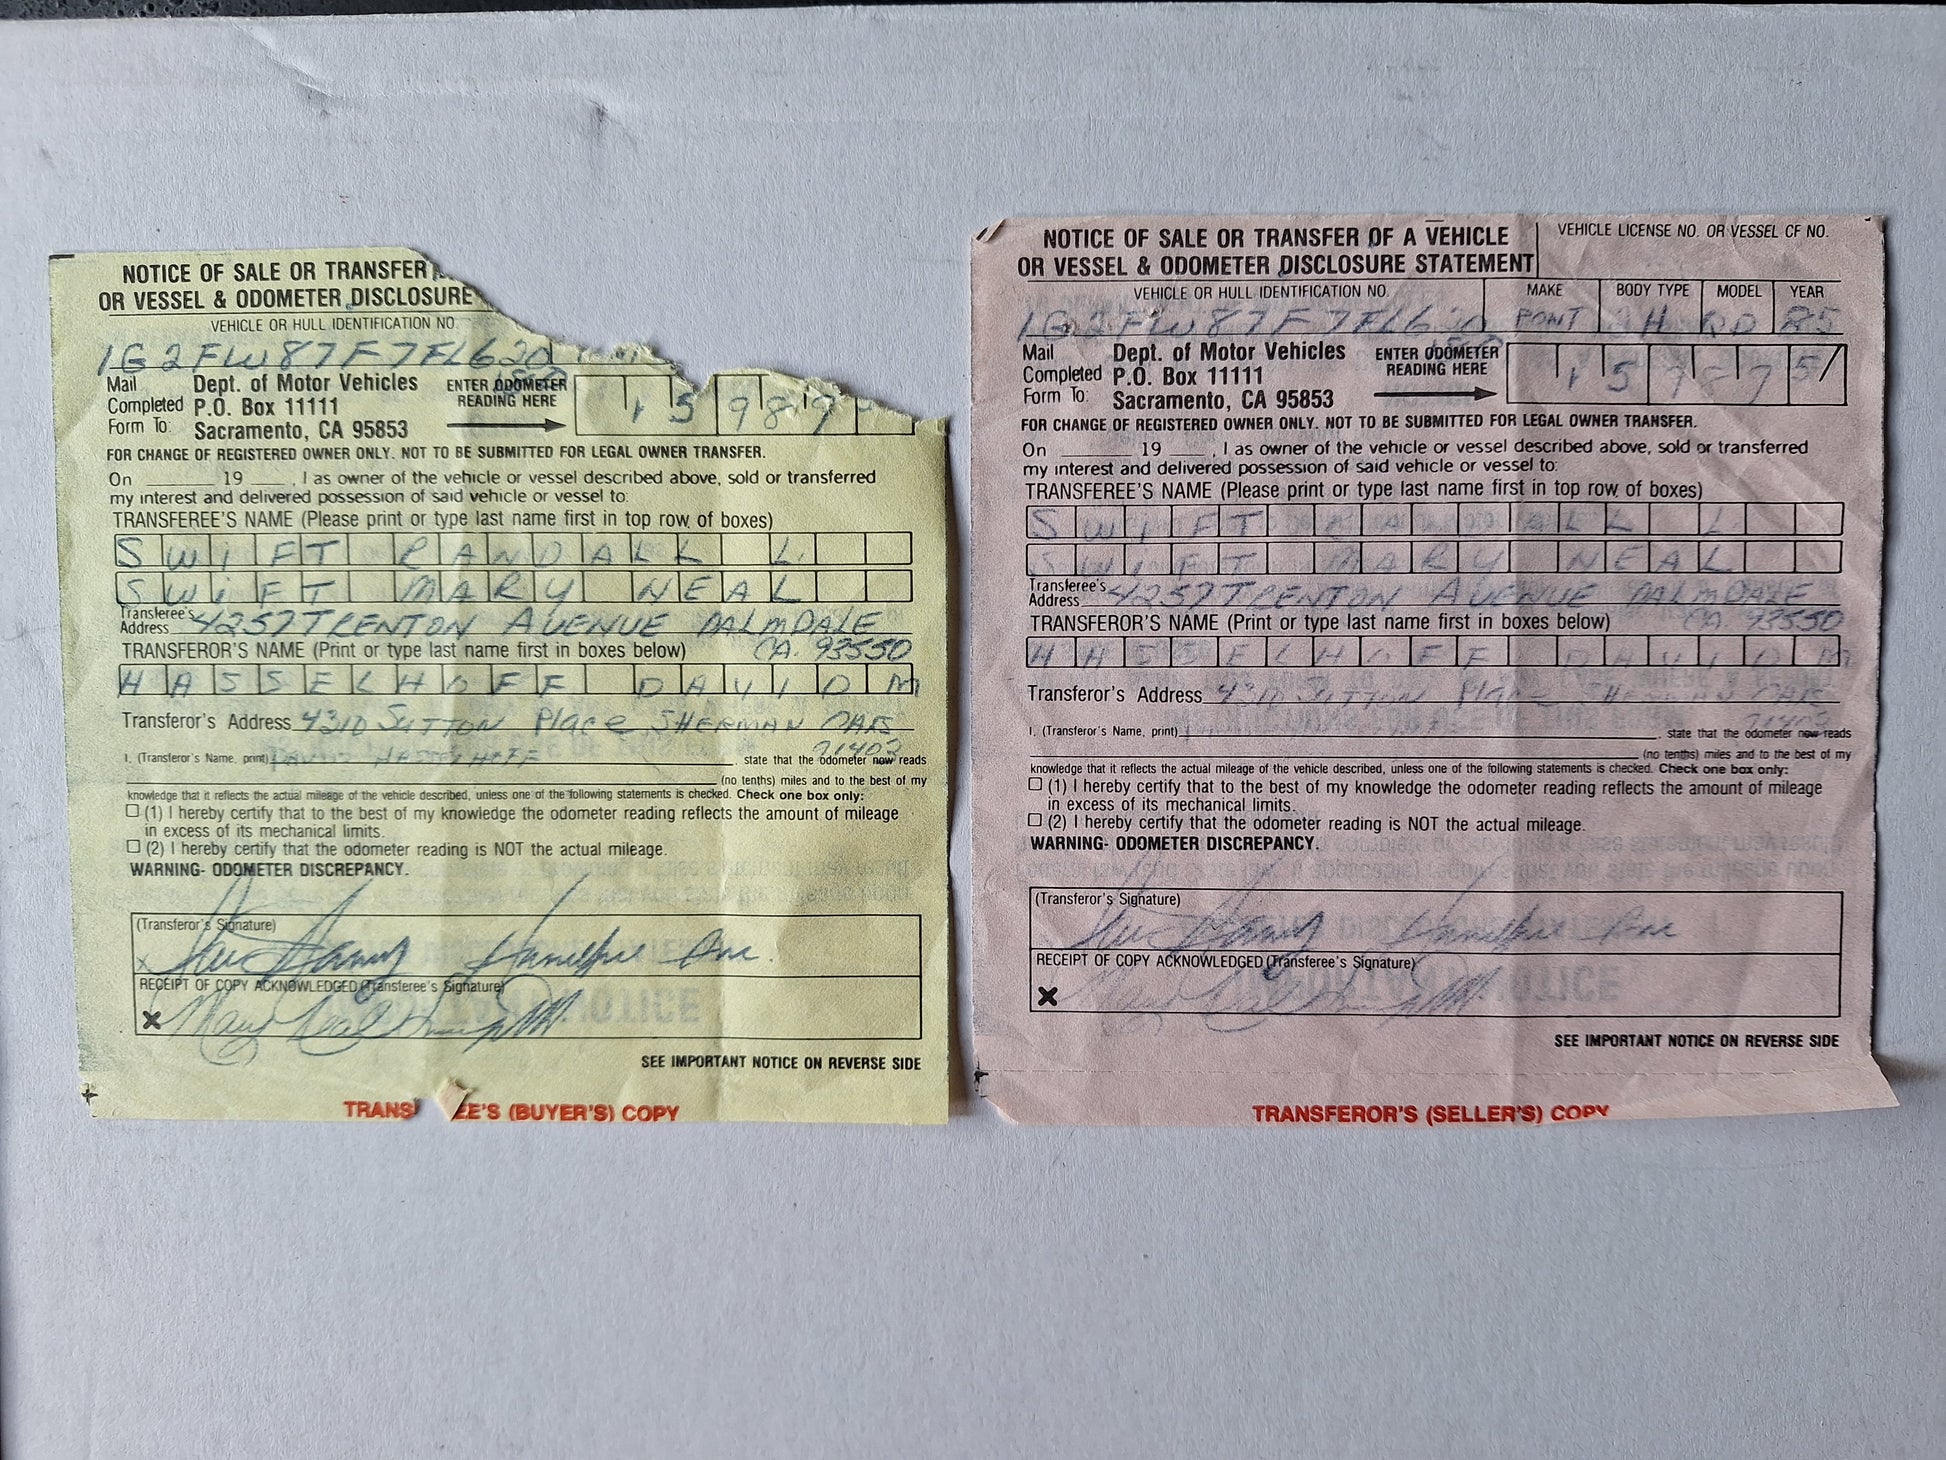 NOTICE OF SALE OR TRANSFER
OR VESSEL & ODOMETER DISCLOSURE
VEHICLE OR HULL IDENTIFICATION NO.
1G2FLW87F7FL620
Mail Completed Form To:
Dept. of Motor Vehicles
P.O. Box 11111
Sacramento, CA 95853
ENTER ODOMETER READING HERE
FOR CHANGE OF REGISTERED OWNER ONLY. NOT TO BE SUBMITTED FOR LEGAL OWNER TRANSFER.
On ______ 19 ___, I as owner of the vehicle or vessel described above, sold or transferred
my interest and delivered possession of said vehicle or vessel to:
TRANSFEREE'S NAME (Please print or type last name first in top row of boxes)
SWIFT RANDALL L.
SWIFT MARY NEAL
Transferee's Address 4257 TRENTON AVENUE PALMDALE
TRANSFEROR'S NAME (Print or type last name first in boxes below) CA. 93550
HASSELHOFF DAVID M
Transferor's Address 4310 SUTTON Place SHERMAN OAKS
91403
I, (Transferor's Name, print) DAVID HASSELHOFF, state that the odometer now reads
(no tenths) miles and to the best of my
knowledge that it reflects the actual mileage of the vehicle described, unless one of the following statements is checked. Check one box only:
(1) I hereby certify that to the best of my knowledge the odometer reading reflects the amount of mileage
in excess of its mechanical limits.
(2) I hereby certify that the odometer reading is NOT the actual mileage.
WARNING- ODOMETER DISCREPANCY.
(Transferor's Signature)
X
RECEIPT OF COPY ACKNOWLEDGED (Transferee's Signature)
X Mary Neal
SEE IMPORTANT NOTICE ON REVERSE SIDE
TRANS EE'S (BUYER'S) COPY
NOTICE OF SALE OR TRANSFER OF A VEHICLE
OR VESSEL & ODOMETER DISCLOSURE STATEMENT
VEHICLE LICENSE NO. OR VESSEL CF NO.
VEHICLE OR HULL IDENTIFICATION NO. MAKE BODY TYPE MODEL YEAR
1G2FLW87F7FL620 PONT 2H RD 85
Mail Completed Form To:
Dept. of Motor Vehicles
P.O. Box 11111
Sacramento, CA 95853
ENTER ODOMETER READING HERE
FOR CHANGE OF REGISTERED OWNER ONLY. NOT TO BE SUBMITTED FOR LEGAL OWNER TRANSFER.
On ______ 19 ___, I as owner of the vehicle or vessel described above, sold or transferred
my interest and delivered possession of said vehicle or vessel to:
TRANSFEREE'S NAME (Please print or type last name first in top row of boxes)
SWIFT RANDALL L
SWIFT MARY NEAL
Transferee's Address 4257 TRENTON AVENUE PALMDALE
TRANSFEROR'S NAME (Print or type last name first in boxes below) CA. 93550
HASSELHOFF DAVID M
Transferor's Address 4310 SUTTON Place SHERMAN OAKS
91403
I, (Transferor's Name, print) , state that the odometer now reads
(no tenths) miles and to the best of my
knowledge that it reflects the actual mileage of the vehicle described, unless one of the following statements is checked. Check one box only:
(1) I hereby certify that to the best of my knowledge the odometer reading reflects the amount of mileage
in excess of its mechanical limits.
(2) I hereby certify that the odometer reading is NOT the actual mileage.
WARNING- ODOMETER DISCREPANCY.
(Transferor's Signature)
RECEIPT OF COPY ACKNOWLEDGED (Transferee's Signature)
X Mary Neal
SEE IMPORTANT NOTICE ON REVERSE SIDE
TRANSFEROR'S (SELLER'S) COPY